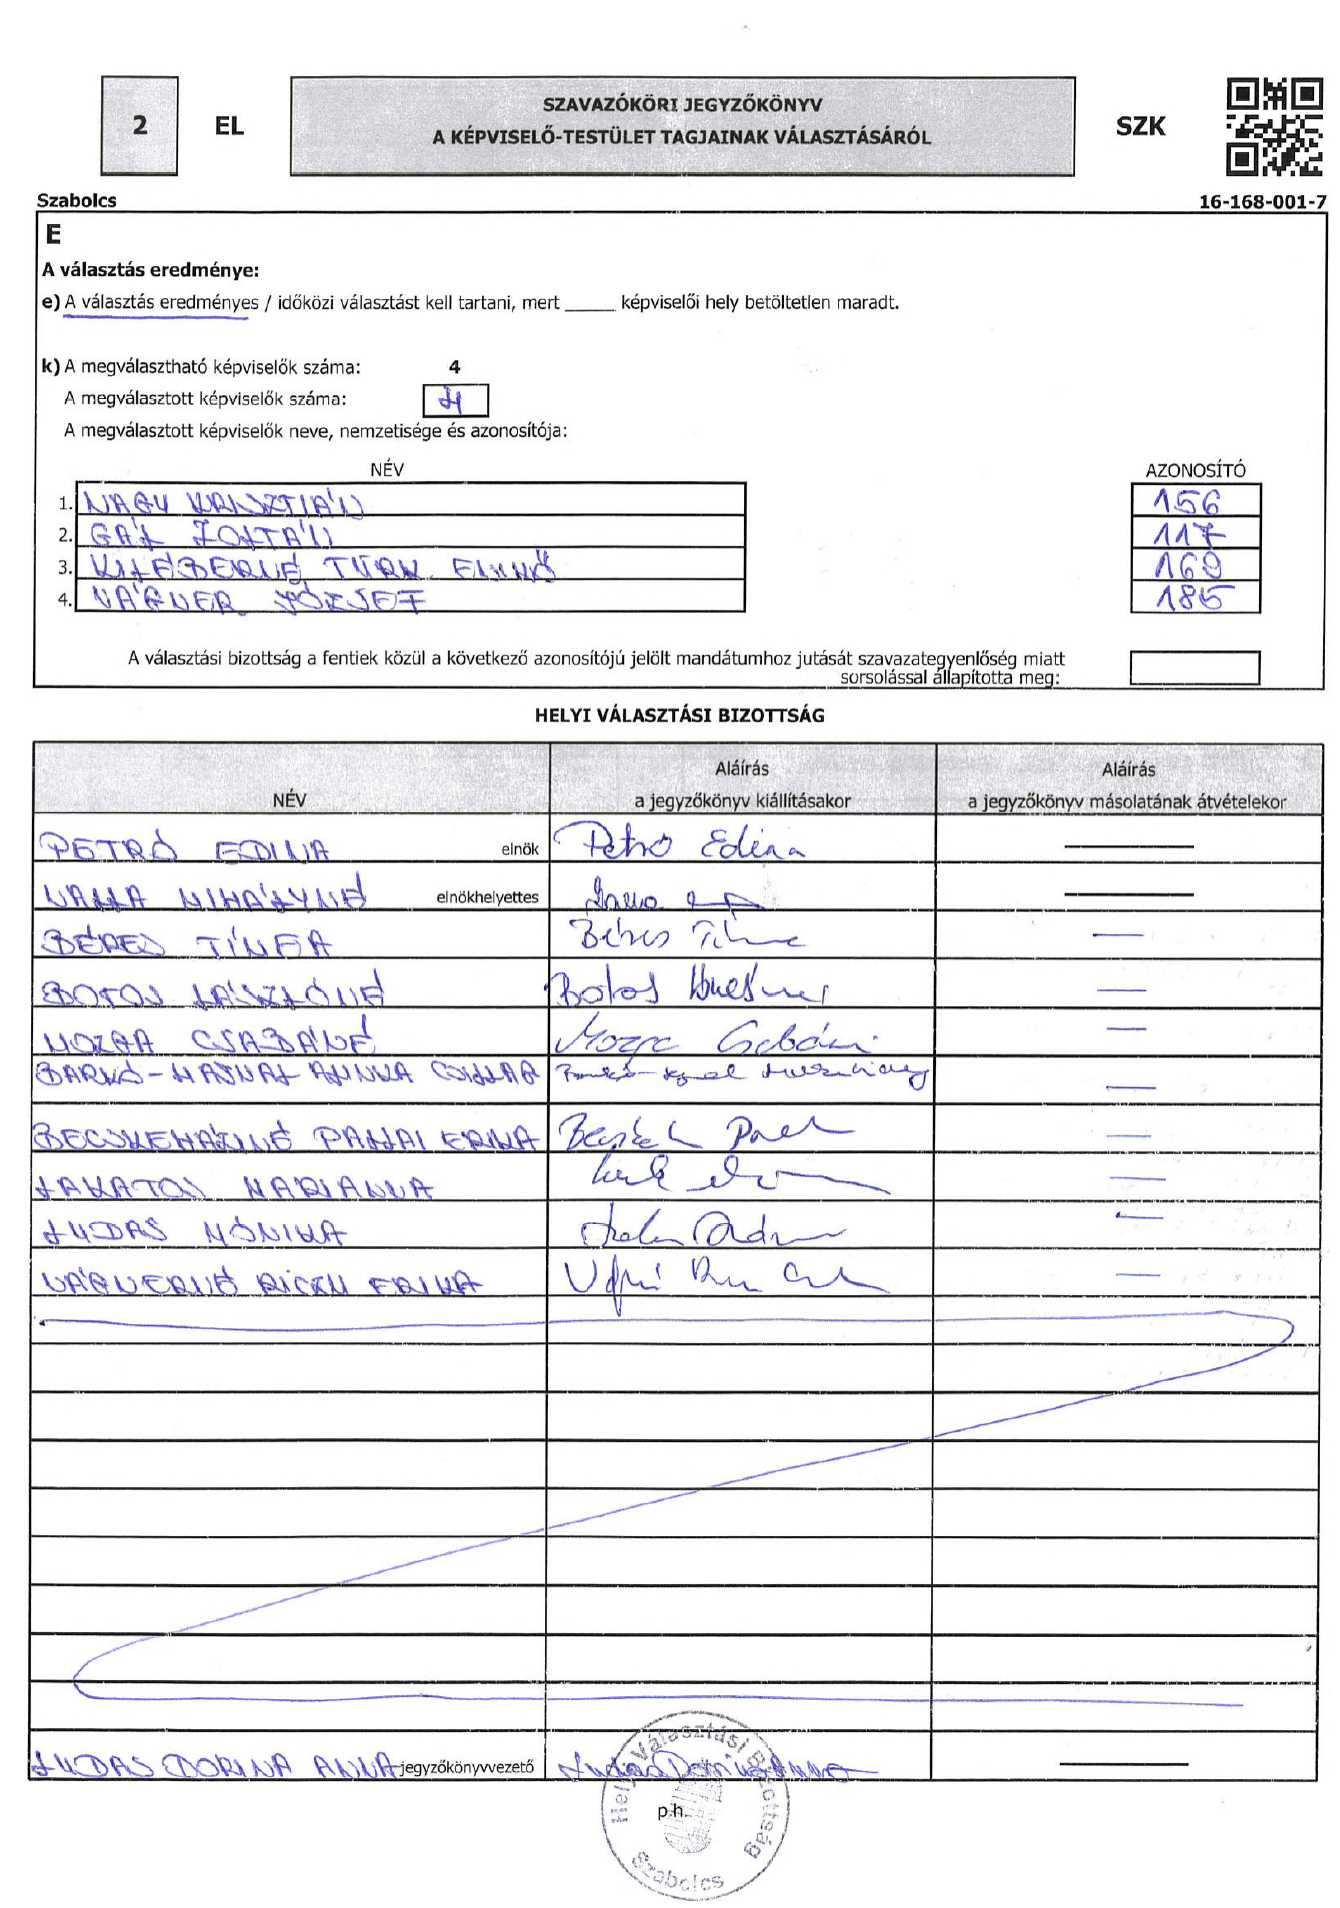 2
EL
SZAVAZÓKÖRI JEGYZŐKÖNYV
A KÉPVISELŐ-TESTÜLET TAGJAINAK VÁLASZTÁSÁRÓL
SZK
Szabolcs
16-168-001-7
E
A választás eredménye:
e) A választás eredményes / időközi választást kell tartani, mert _____ képviselői hely betöltetlen maradt.
k) A megválasztható képviselők száma: 4
A megválasztott képviselők száma: 4
A megválasztott képviselők neve, nemzetisége és azonosítója:
NÉV AZONOSÍTÓ
1. NAGY KRISZTIÁN 156
2. GÁL ZOLTÁN 117
3. KLÉBERNÉ TÜRK ENIKŐ 169
4. VÁGNER JÓZSEF 185
A választási bizottság a fentiek közül a következő azonosítójú jelölt mandátumhoz jutását szavazategyenlőség miatt
sorsolással állapította meg:
HELYI VÁLASZTÁSI BIZOTTSÁG
NÉV
Aláírás
a jegyzőkönyv kiállításakor
Aláírás
a jegyzőkönyv másolatának átvételekor
PETRÓ EDINA elnök Petró Edina
MIHÁLYNÉ elnökhelyettes
BÉRES TÍMEA Béres Tímea
BOTOS LÁSZLÓNÉ Botos Lászlóné
MOZGA CSABÁNÉ Mozga Csabáné
BARKÓ-HAJNAL CSILLAG
BECSKEHÁZINÉ ERIKA
LAKATOS MARIANNA
LUDAS MÓNIKA
VÁGNERNÉ ERIKA
LUDAS DORINA ANNA jegyzőkönyvvezető Ludas Dorina Anna
p.h.
Helyi Választási Bizottság
Szabolcs